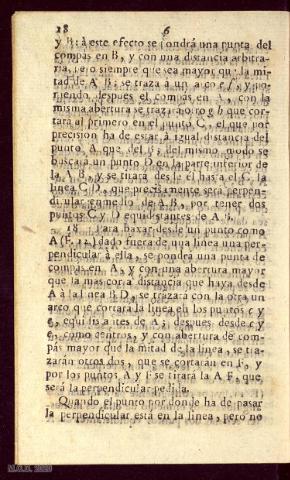 18 6
y B: à este efecto se pondrá una punta del
compas en B, y con una distancia arbitra-
ria, pero siempre que sea mayor que la mi-
tad de A B; se traza un arco e f, y po-
niendo despues el compas en A, con la
misma abertura se traza otro g h que cor-
tará al primero en el punto C, el que por
precision ha de estar à igual distancia del
punto A que del B; del mismo modo se
buscará un punto D en la parte inferior de
la A B, y se tirará desde el hasta el C, la
linea C D, que precisamente será perpen-
dicular en medio de A B, por tener dos
puntos C y D equidistantes de A B.
18 Para baxar desde un punto como
A (F. 12.) dado fuera de una linea una per-
pendicular à ella, se pondrá una punta de
compas en A, y con una abertura mayor
que la mas corta distancia que haya desde
A à la linea B D, se trazará con la otra un
arco que cortará la linea en los puntos c y
e, equidistantes de A; despues desde c y
e, como centros, y con abertura de com-
pás mayor que la mitad de la linea, se tra-
zarán otros dos, que se cortarán en F, y
por los puntos A y F se tirará la A F, que
será la perpendicular pedida.
Quando el punto por donde ha de pasar
la perpendicular está en la linea, pero no